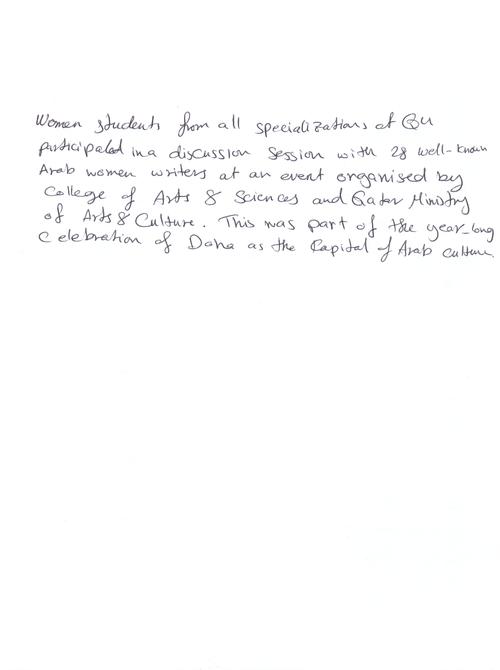 Women students from all specializations at QU
participated in a discussion session with 28 well-known
Arab women writers at an event organised by
College of Arts & Sciences and Qatar Ministry
of Arts & Culture. This was part of the year-long
Celebration of Doha as the Capital of Arab culture.